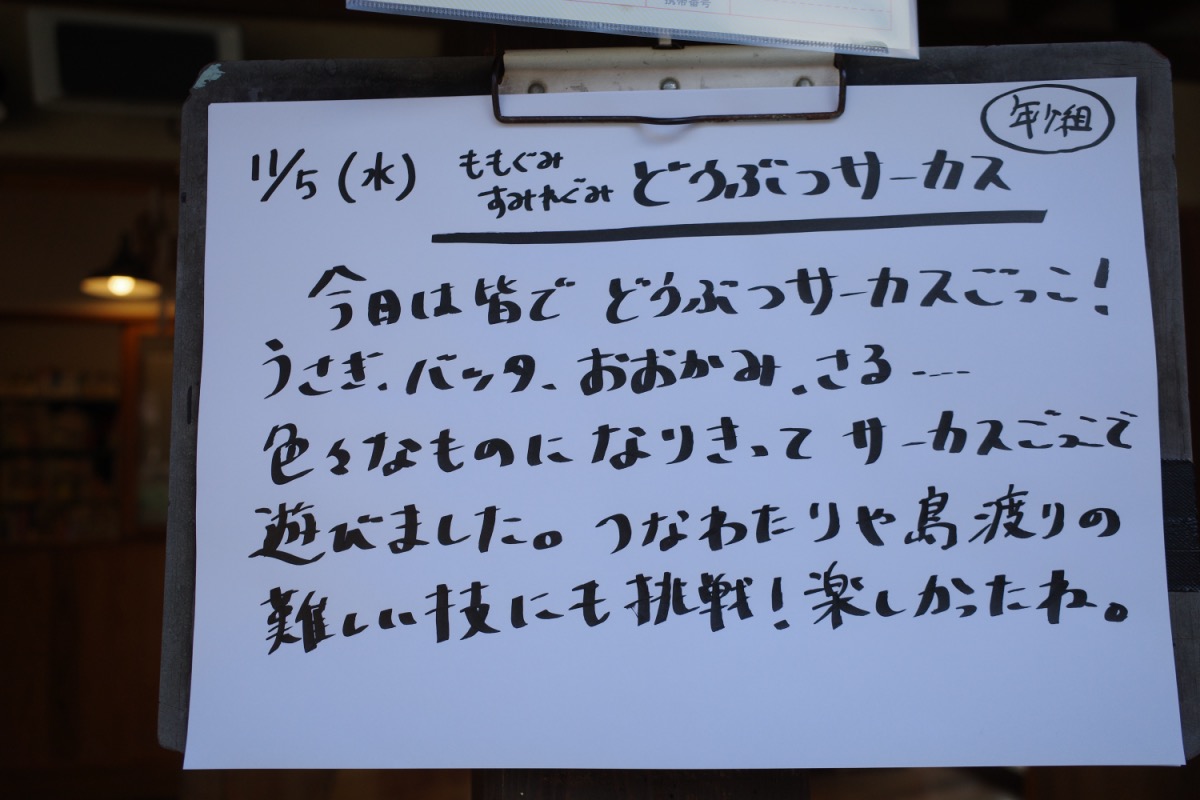 携帯番号
年少組
11/5(水) ももぐみ すみれぐみ どうぶつサーカス
今日は皆で どうぶつサーカスごっこ!
うさぎ、バッタ、おおかみ、さる----
色々なものになりきって サーカスごっこで
遊びました。つなわたりや島渡りの
難しい技にも挑戦!楽しかったね。